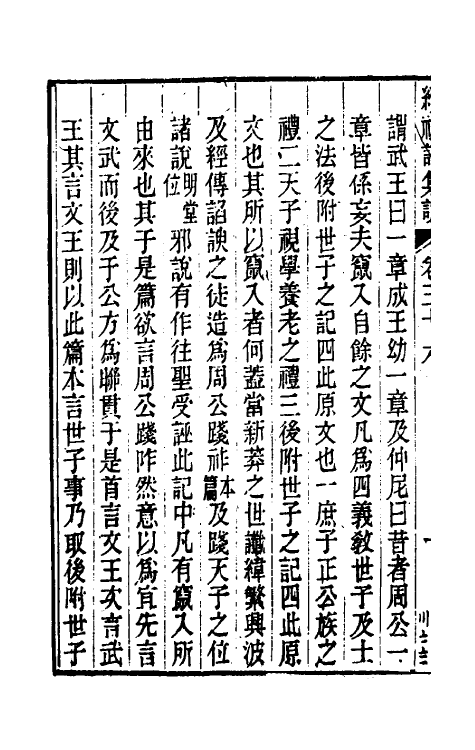 謂武王曰一章成王幼一章及仲尼曰昔者周公一
章皆係妄夫竄入自餘之文凡爲四義敎世子及士
之法後附世子之記四此原文也一庶子正公族之
禮二天子視學養老之禮三後附世子之記四此原
文也其所以竄入者何蓋當新莽之世讖緯繁興波
及經傳諂諛之徒造爲周公踐祚本篇及踐天子之位
諸說明堂位邪說有作往聖受誣此記中凡有竄入所
由來也其于是篇欲言周公踐阼然意以爲宜先言
文武而後及于公方爲聯貫于是首言文王次言武
王其言文王則以此篇本言世子事乃取後附世子